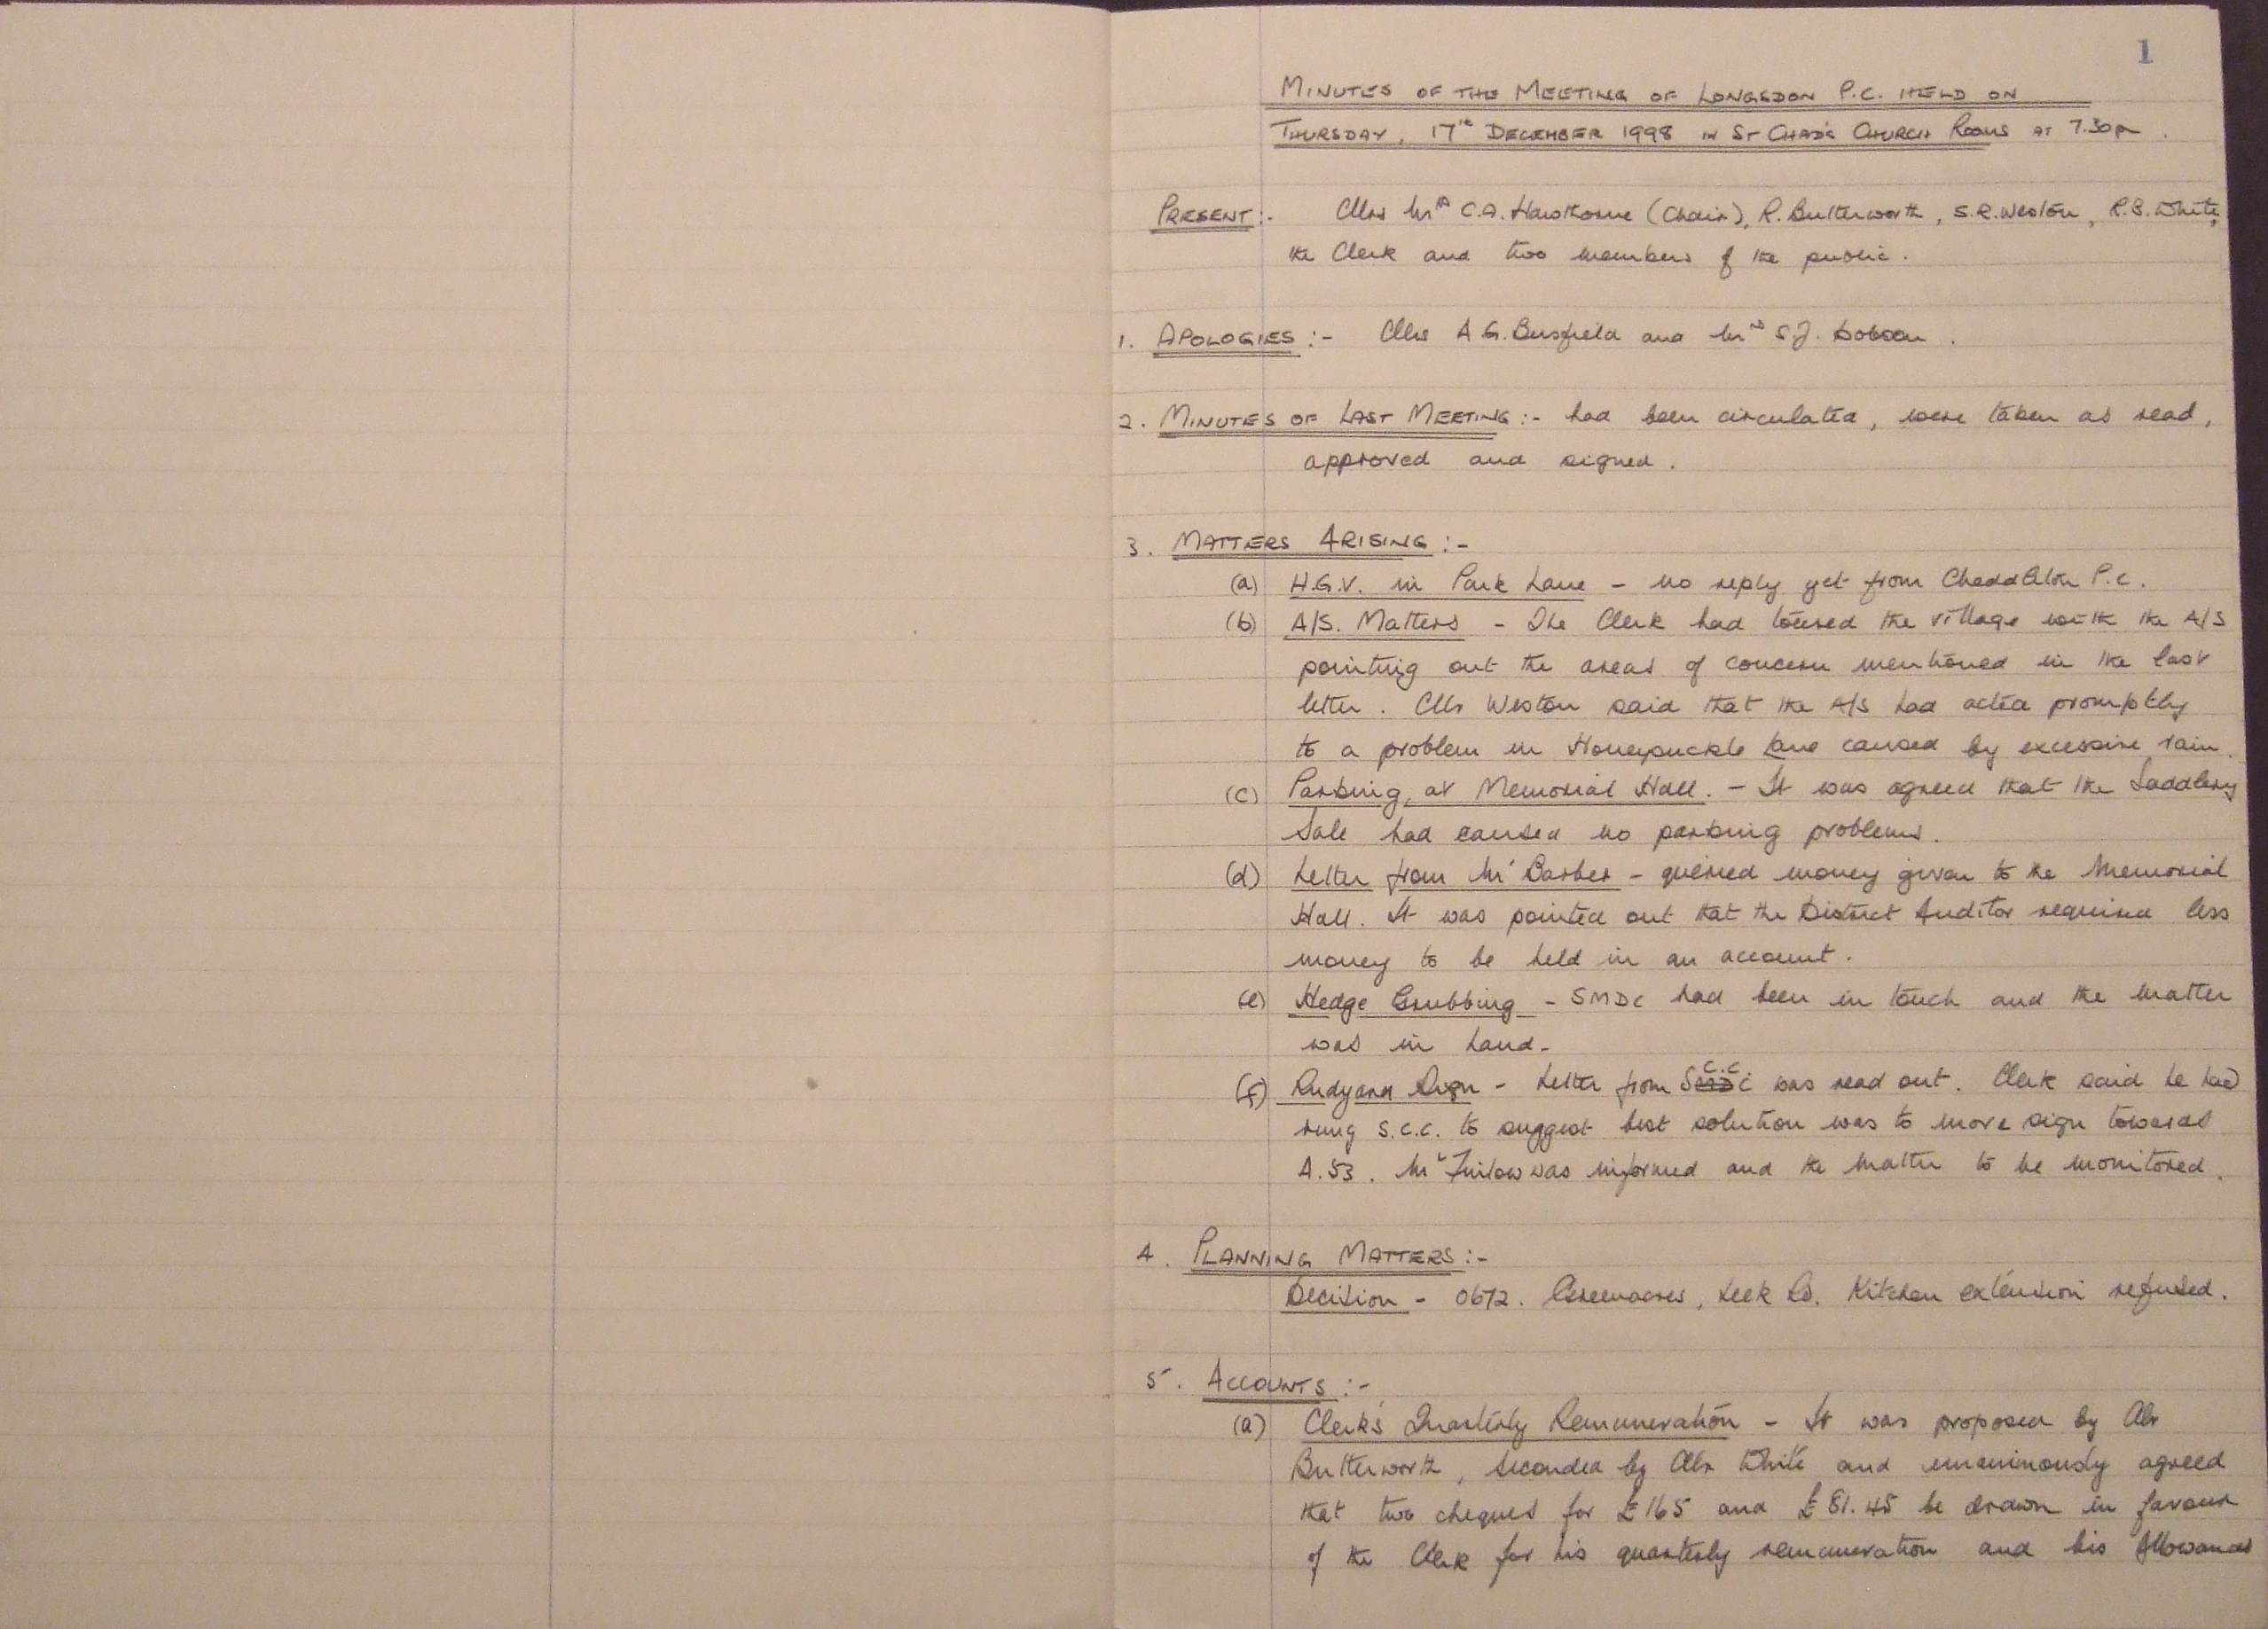 1
MINUTES OF THE MEETING OF LONGSDON P.C. HELD ON
THURSDAY, 17th DECEMBER 1998 IN ST CHAD'S CHURCH ROOMS AT 7.30pm.
PRESENT:- Cllrs Mrs C.A. Hawthorne (Chair), R. Butterworth, S.R. Weston, R.B. White,
the Clerk and two members of the public.
1. APOLOGIES:- Cllrs A G. Busfield and Mrs S.J. Dobson.
2. MINUTES OF LAST MEETING:- had been circulated, were taken as read,
approved and signed.
3. MATTERS ARISING:-
(a) H.G.V. in Park Lane - no reply yet from Cheddleton P.C.
(b) A/S. Matters - The Clerk had toured the village with the A/S
pointing out the areas of concern mentioned in the last
letter. Cllr Weston said that the A/S had acted promptly
to a problem in Honeysuckle Lane caused by excessive rain.
(c) Parking, at Memorial Hall. - It was agreed that the Saddlery
Sale had caused no parking problems.
(d) Letter from Mr Barber - queried money given to the Memorial
Hall. It was pointed out that the District Auditor required less
money to be held in an account.
(e) Hedge Grubbing - SMDC had been in touch and the matter
was in hand.
(f) Rudyard Sign - Letter from S.C.C. was read out. Clerk said he had
rung S.C.C. to suggest best solution was to move sign towards
A.53. Mr Finlow was informed and the matter to be monitored.
4. PLANNING MATTERS:-
Decision - 0672. Greenacres, Leek Rd. Kitchen extension refused.
5. ACCOUNTS:-
(a) Clerk's Quarterly Remuneration - It was proposed by Cllr
Butterworth, seconded by Cllr White and unanimously agreed
that two cheques for £165 and £81.45 be drawn in favour
of the Clerk for his quarterly remuneration and his Allowances